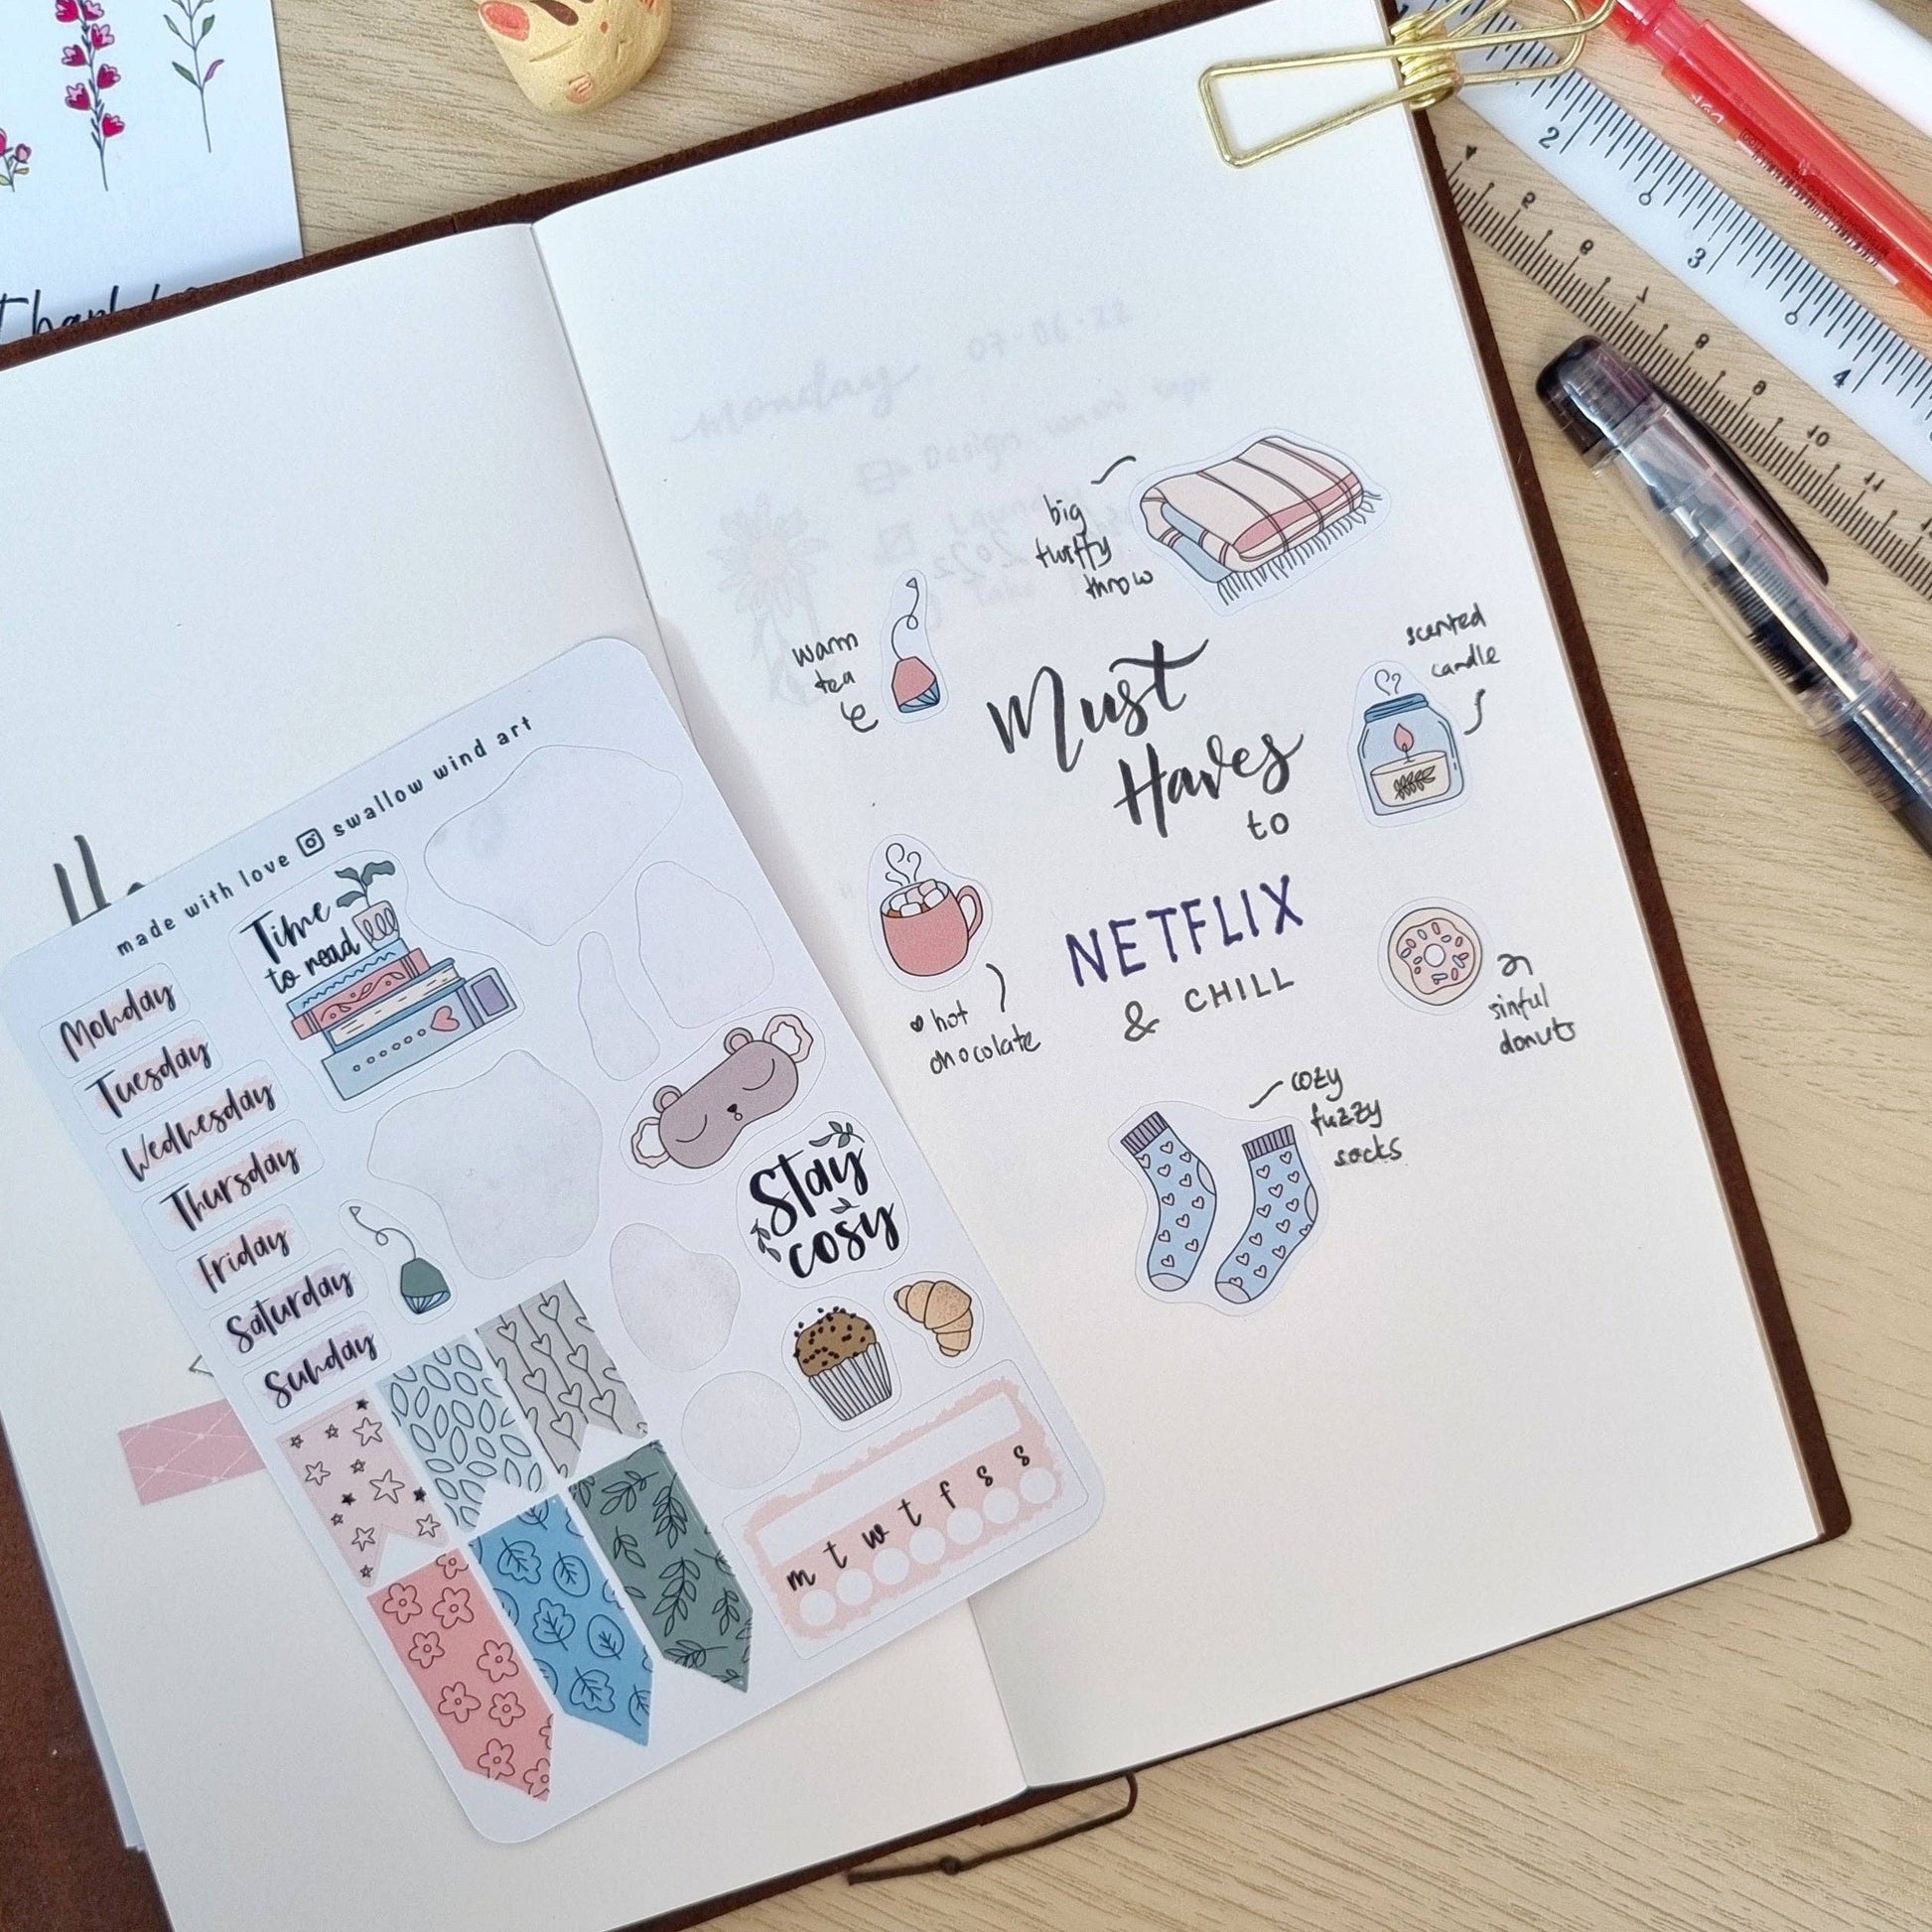 made with love swallow wind art
Time
to read
Monday
Tuesday
Wednesday
Thursday
Friday
Saturday
Sunday
Stay
cosy
m t w t f s s
Monday 07·06·22
Design washi tape
big
fluffy
throw
warm
tea
scented
candle
Must
Haves
to
NETFLIX
& CHILL
hot
chocolate
sinful
donuts
cozy
fuzzy
socks
2
3
4
4
5
6
7
8
9
10
11